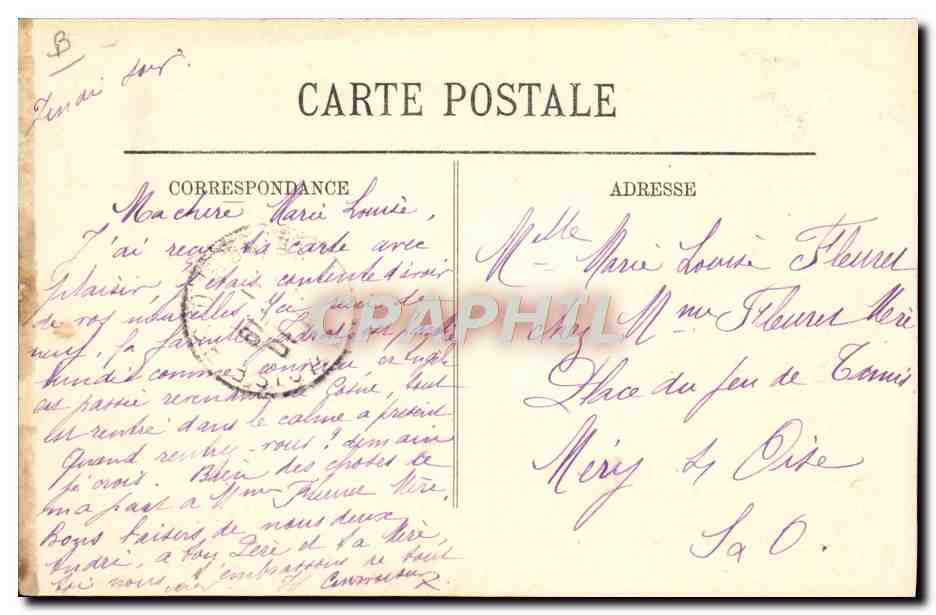 B
soir.
CARTE POSTALE
CORRESPONDANCE
Ma chere Marie Louise,
J'ai reçu ta carte avec
plaisir, j'étais contente d'avoir
de vos nouvelles
neuf, la famille
lundi comme convenu
est passé revenant de Cosne, tout
est rentré dans le calme a present
Quand rentrez vous? demain
je crois. Bien des choses de
ma part a Mme Fleuret Mère,
Bons baisers de nous deux
André, a ton Père et ta Mère,
toi nous t'embrassons de tout
ADRESSE
Melle Marie Louise Fleuret
chez Mme Fleuret Mère
Place du jeu de Tennis
Méry s/ Oise
S a O.
CPAPHIL